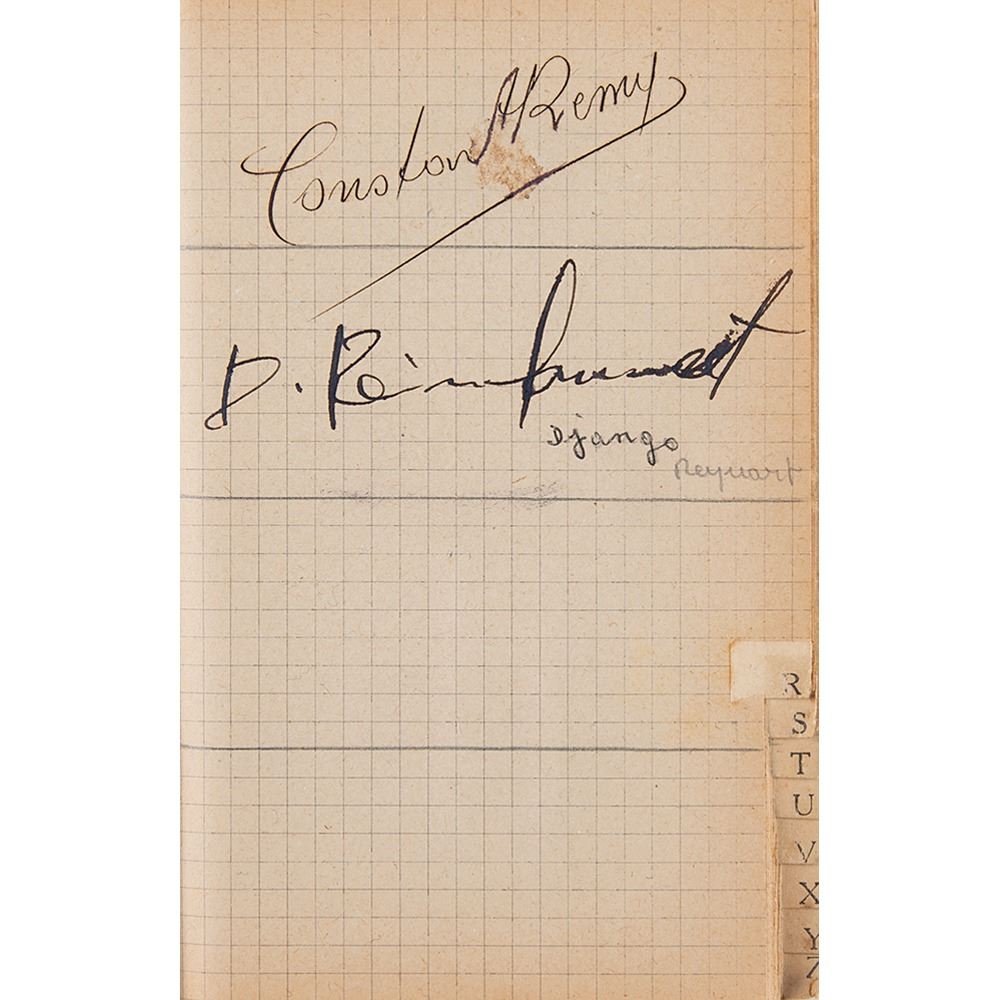 Constant Remy
D. Reinhardt
Django
Reyuart
R
S
T
U
V
X
Y
Z